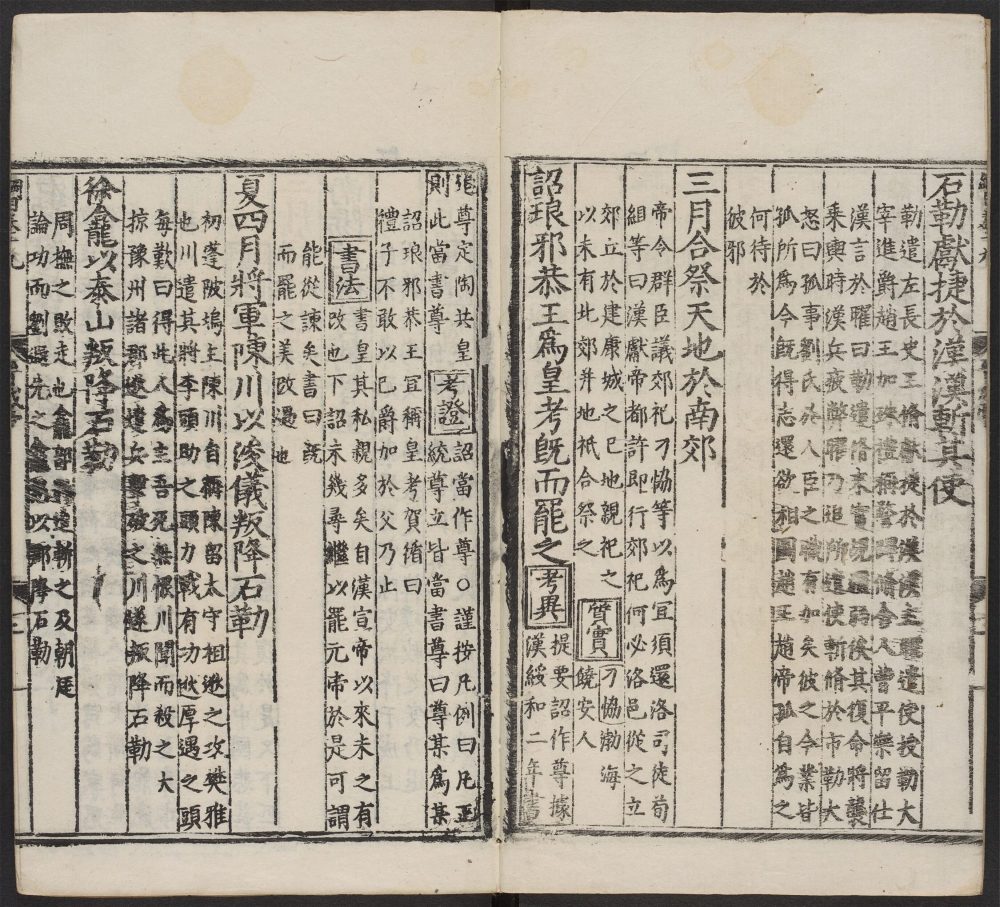 石勒獻捷於漢漢斬其使
勒遣左長史王脩獻捷於漢漢主曜遣使授勒大
宰進爵趙王加殊禮稱警蹕脩舍人曹平樂留仕
漢言於曜曰勒遣脩來實覘強弱俟其復命將襲
乗輿時漢兵疲弊曜乃追所遣使斬脩於市勒大
怒曰孤事劉氏於人臣之職有加矣彼之今業皆
孤所為今既得志還欲相圖趙王趙帝孤自為之
何待於
彼邪
三月合祭天地於南郊
帝令群臣議郊祀刁協等以為宜須還洛司徒荀
組等曰漢獻帝都許即行郊祀何必洛邑從之立
郊立於建康城之巳地親祀之 質實 刁協渤海
以未有北郊并地祇合祭之 饒安人
詔琅邪恭王為皇考既而罷之 考異 提要詔作尊據
漢綏和二年書
尊定陶共皇 考證 詔當作尊○謹按凡例曰凡正
則此當書尊 統尊立皆當書尊曰尊某為某
詔琅邪恭王宜稱皇考賀循曰
禮子不敢以己爵加於父乃止
書法 書皇其私親多矣自漢宣帝以來未之有
改也下詔未幾尋繼以罷元帝於是可謂
能從諫矣書曰既
而罷之美改過也
夏四月將軍陳川以浚儀叛降石勒
初蓬陂塢主陳川自稱陳留太守祖逖之攻樊雅
也川遣其將李頭助之頭力戰有功逖厚遇之頭
每歎曰得此人為主吾死無恨川聞而殺之大
掠豫州諸郡逖遣兵擊破之川遂叛降石勒
徐龕以泰山叛降石勒
周撫之敗走也龕部將追斬之及朝廷
論功而劉遐先之龕怒以郡降石勒